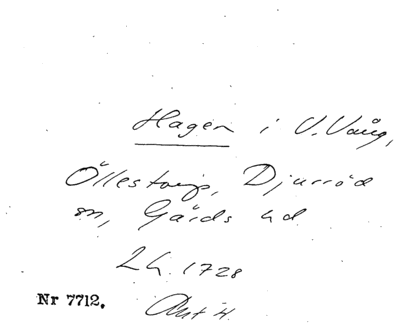 Hagen i V. Vång,
Öllestorp, Djurröd
sn, Gärds hd
LH. 1728
Nr 7712.